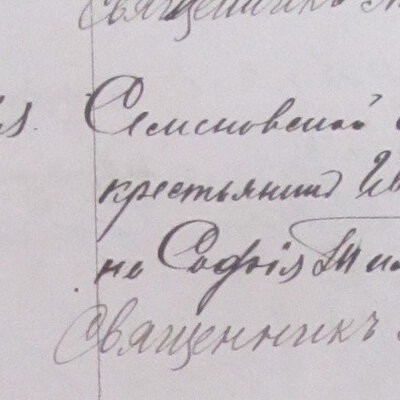 Священникъ
Семеновской
крестьянинъ Ив
но Софія
Священникъ